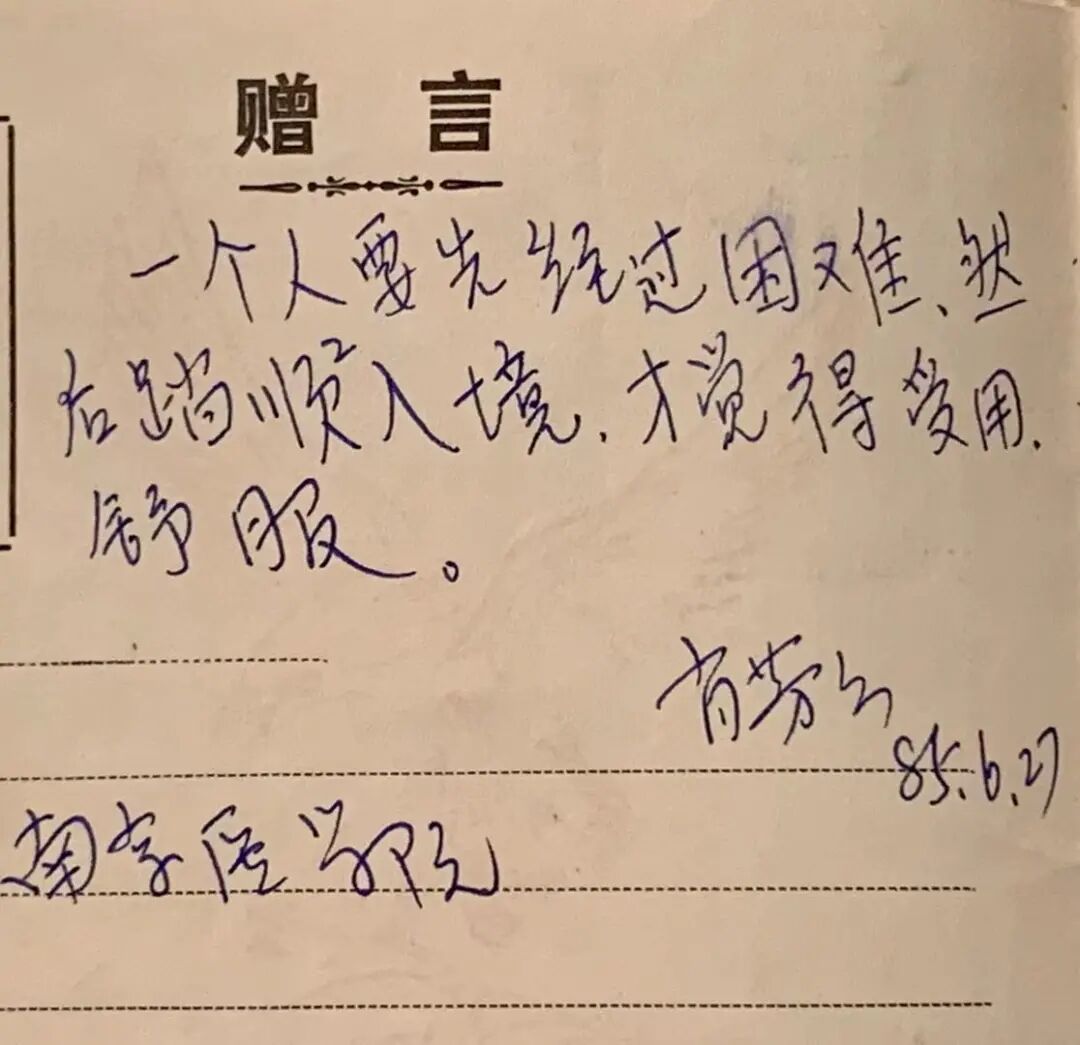 赠言
一个人要先经过困难、然
后踏顺入境、才觉得受用、
舒服。
肖芳
85.6.27
南京医学院